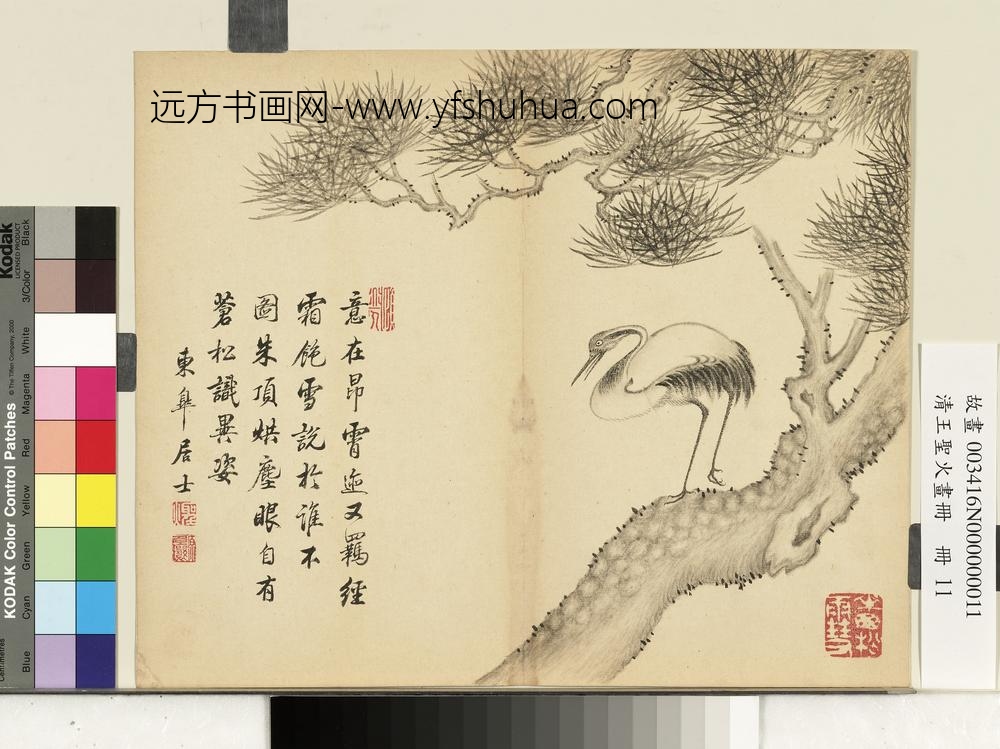 远方书画网-www.yfshuhua.com
意在昂霄迹又羈經
霜飽雪說於誰不
圖朱頂烘塵眼自有
蒼松識異姿
東皐居士
故畫 003416N000000011
清王聖火畫冊 冊 11
Kodak
LICENSED PRODUCT
KODAK Color Control Patches
© The Tiffen Company, 2000
Centimetres
Blue
Cyan
Green
Yellow
Red
Magenta
White
3/Color
Black